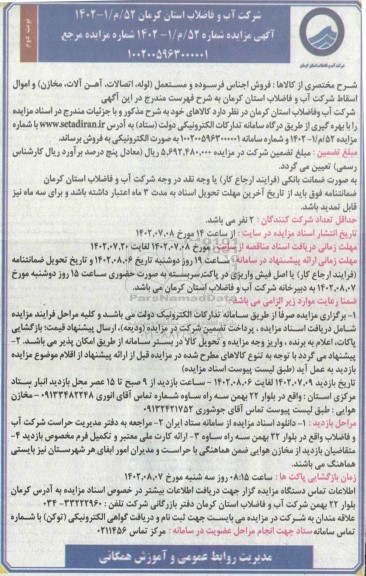 شرکت آب و فاضلاب استان کرمان ۵۲/م/۱-۱۴۰۲
آگهی مزایده شماره ۵۲/م/۱-۱۴۰۲ شماره مزایده مرجع
۱۰۰۲۰۰۵۹۶۳۰۰۰۰۰۱
نوبت دوم
شرکت آب و فاضلاب استان کرمان
شرح مختصری از کالاها : فروش اجناس فرسوده و مستعمل (لوله، اتصالات، آهن آلات، مخازن) و اموال
اسقاط شرکت آب و فاضلاب استان کرمان به شرح فهرست مندرج در این آگهی
شرکت آب وفاضلاب استان کرمان در نظر دارد کالاهای خود به شرح مذکور و با جزئیات مندرج در اسناد مزایده
را با بهره گیری از طریق درگاه سامانه تدارکات الکترونیکی دولت (ستاد) به آدرس www.setadiran.ir با شماره
مزایده ۵۲/م/۱-۱۴۰۲ و شماره سامانه ۱۰۰۲۰۰۵۹۶۳۰۰۰۰۰۱ به صورت الکترونیکی به فروش برساند.
مبلغ تضمین : مبلغ تضمین شرکت در مزایده ۵,۶۹۲,۴۸۰,۰۰۰ ریال (معادل پنج درصد برآورد ریال کارشناس
رسمی) تعیین می گردد.
به صورت ضمانت بانکی (فرایند ارجاع کار) یا وجه نقد در وجه شرکت آب و فاضلاب استان کرمان
ضمانتنامه فوق باید از تاریخ آخرین مهلت تحویل اسناد به مدت ۳ ماه اعتبار داشته باشد و برای سه ماه نیز
قابل تمدید باشد.
حداقل تعداد شرکت کنندگان : ۲ نفر می باشد.
تاریخ انتشار اسناد مزایده در سایت : از ساعت ۱۴ مورخ ۱۴۰۲.۰۷.۰۸
مهلت زمانی دریافت اسناد مناقصه از سایت: مورخ ۱۴۰۲.۰۷.۰۸ لغایت ۱۴۰۲.۰۷.۲۰
مهلت زمانی ارائه پیشنهاد در سامانه : ساعت ۱۹ روز دوشنبه تاریخ ۱۴۰۲.۰۸.۰۶ و تاریخ تحویل ضمانتنامه
(فرایند ارجاع کار) یا اصل فیش واریزی در پاکت سربسته به صورت حضوری ساعت ۱۵ روز دوشنبه مورخ
۱۴۰۲.۰۸.۰۷ به دبیرخانه شرکت آب و فاضلاب استان کرمان می باشد.
ضمنا رعایت موارد زیر الزامی می باشد:
۱- برگزاری مزایده صرفا از طریق سامانه تدارکات الکترونیک دولت می باشد و کلیه مراحل فرایند مزایده
شامل دریافت اسناد مزایده ، پرداخت تضمین شرکت در مزایده (ودیعه)، ارسال پیشنهاد قیمت؛ بازگشایی
پاکات، اعلام به برنده ، واریز وجه مزایده و تحویل کالا در بستر سامانه از طریق امکان پذیر می باشد. ۲-
پیشنهاد می گردد با توجه به تنوع کالاهای مطرح شده در مزایده قبل از ارائه پیشنهاد از اقلام موضوع مزایده
بازدید به عمل آید (طبق لیست پیوست اسناد مزایده)
تاریخ بازدید ۱۴۰۲.۰۷.۰۹ لغایت ۱۴۰۲.۰۸.۰۶ - ساعت بازدید از ۹ صبح تا ۱۵ عصر محل بازدید انبار بستاد
مرکزی استان : واقع در بلوار ۲۲ بهمن سه راه ساوه شماره تماس آقای انوری ۰۹۱۳۳۴۸۲۲۴۸ - مخازن
هوایی : طبق لیست پیوست تماس آقای جوشوری ۰۹۱۳۲۴۲۱۷۵۲
مراحل بازدید : ۱- دانلود اسناد مزایده از سامانه ستاد ایران ۲- مراجعه به دفتر مدیریت حراست شرکت آب
و فاضلاب واقع در بلوار ۲۲ بهمن سه راه ساوه ۳- ارائه کارت ملی معتبر و تکمیل فرم مخصوص بازدید ۴-
متقاضیان بازدید از مخازن هوایی ضمن هماهنگی با حراست و مدیران امور ابفای هر شهرستان نیز بایستی
هماهنگ می باشند.
زمان بازگشایی پاکت ها : ساعت ۰۸:۱۵ روز سه شنبه مورخ ۱۴۰۲.۰۸.۰۷
اطلاعات تماس دستگاه مزایده گزار جهت دریافت اطلاعات بیشتر در خصوص اسناد مزایده به آدرس کرمان
بلوار ۲۲ بهمن شرکت آب و فاضلاب استان کرمان دفتر بازرگانی شرکت تلفن : ۳۳۲۲۲۹۶۰ - ۰۳۴
علاقه مندان به شرکت در مزایده می بایست جهت ثبت نام و دریافت گواهی الکترونیکی (توکن) با شماره
تماس سامانه ستاد جهت انجام مراحل عضویت در سامانه : مرکز تماس ۰۲۱۱۴۵۶
مدیریت روابط عمومی و آموزش همگانی